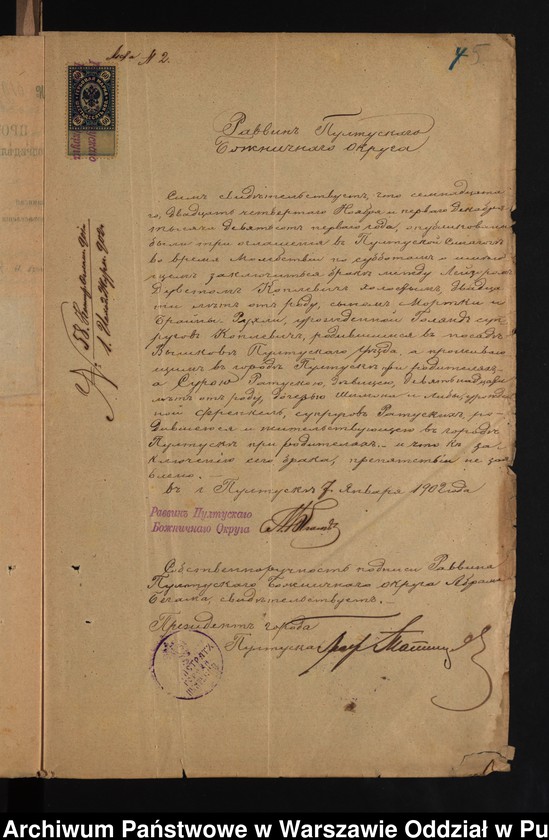 № 2.
45
Раввинъ Пултускаго
Божничнаго округа
Симъ свидѣтельствуетъ, что семнадцата-
го, двадцать четвертаго Ноября и перваго Декабря
тысяча девятьсотъ перваго года, опубликованы
были три оглашенія въ Пултуской
во время молебствій по субботамъ о
щемъ заключиться бракѣ между Лейзоромъ
Коплевичъ холостымъ, двадца-
ти лѣтъ отъ роду, сыномъ Мортки и
Брайны Рузяли, урожденной Голяндъ суп-
руговъ Коплевичъ, родившимся въ посадѣ
Вышковъ Пултускаго уѣзда, и проживаю-
щимъ въ городѣ Пултускѣ при родителяхъ
а Сурою Ратускою, дѣвицею, девятнадцати
лѣтъ отъ роду, дочерью Шимона и Либы, урожден-
ной Френкель, супруговъ Ратускихъ, ро-
дившеюся и жительствующею въ городѣ
Пултускѣ при родителяхъ и что къ за-
ключенію сего брака, препятствій не зая-
влено.
въ г. Пултускъ 7 Января 1902 года
Раввинъ Пултускаго
Божничнаго Округа
Собственноручность подписи Раввина
Пултускаго Божничнаго округа Абрама
свидѣтельствуетъ.
Президентъ города
Пултуска
Archiwum Państwowe w Warszawie Oddział w Pu